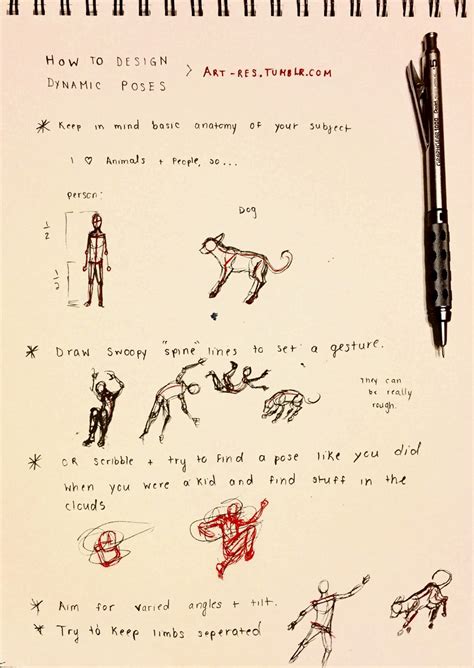 HOW TO DESIGN > ART-RES.TUMBLR.COM
DYNAMIC POSES
* Keep in mind basic anatomy of your subject
I ♡ Animals + People, so...
person:
Dog
1/2
1/2
* Draw swoopy "spine" lines to set a gesture.
They can
be really
rough.
* OR scribble + try to find a pose like you did
when you were a kid and find stuff in the
clouds
* Aim for varied angles + tilt.
* Try to keep limbs seperated